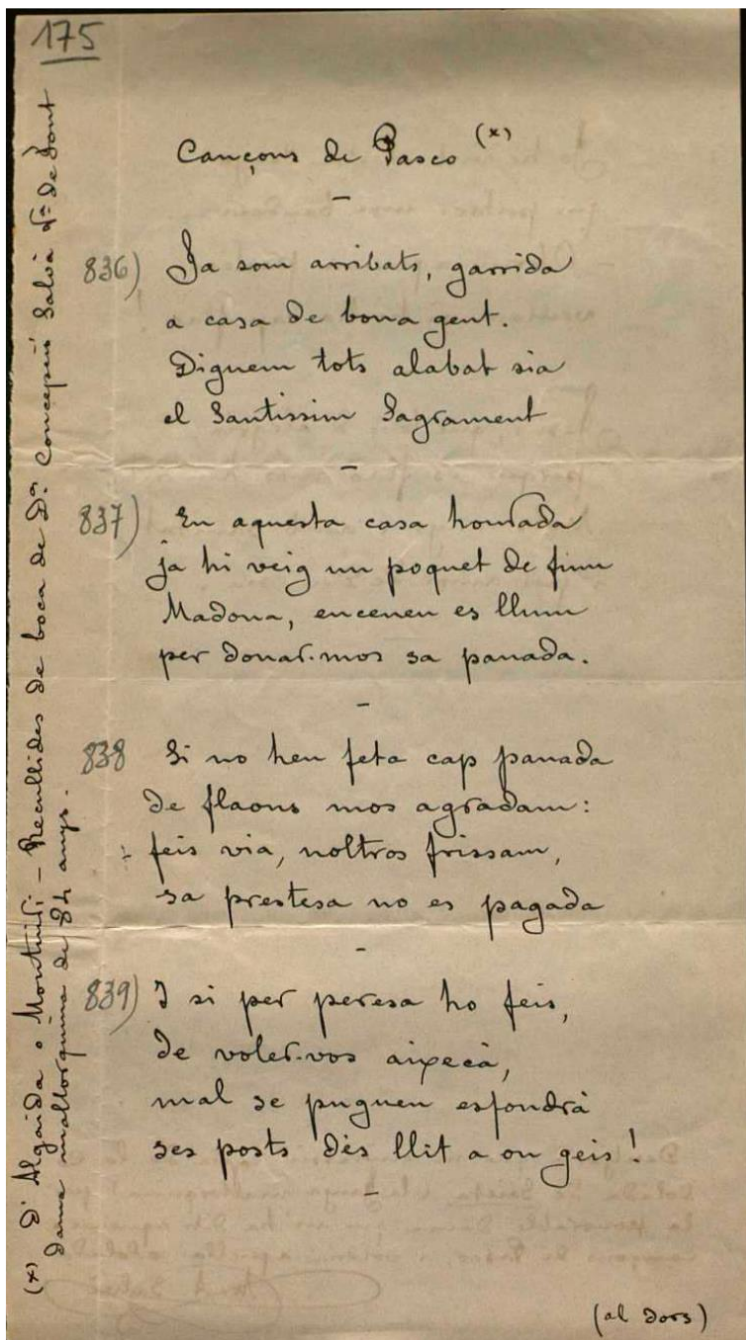 175
Cançons de Pasco (x)
836) Ja som arribats, garrida
a casa de bona gent.
Diguem tots alabat sia
el Santissim Sagrament
837) En aquesta casa honrada
ja hi veig un poquet de fum
Madona, enceneu es llum
per donar-mos sa panada.
838 Si no heu feta cap panada
de flaons mos agradam:
feis via, noltros frissam,
sa prestesa no es pagada
839) I si per peresa ho feis,
de voler-vos aixecà,
mal se puguen esfondrà
ses posts dès llit a on geis!
(al dors)
(x) D' Algaida o Montuiri - Recullides de boca de Dª. Concepció Salvà Vª de Font
dama mallorquina de 84 anys.